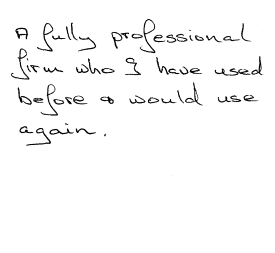 A fully professional
firm who I have used
before & would use
again.